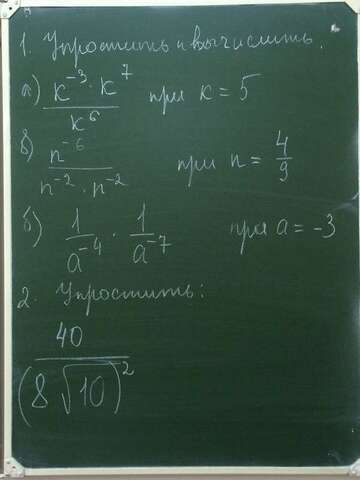 1. Упростить и вычислить.
а) (к⁻³ · к⁷)/к⁶ при к = 5
в) n⁻⁶/(n⁻² · n⁻²) при n = 4/9
б) 1/a⁻⁴ · 1/a⁻⁷ при a = -3
2. Упростить:
40/(8√10)²